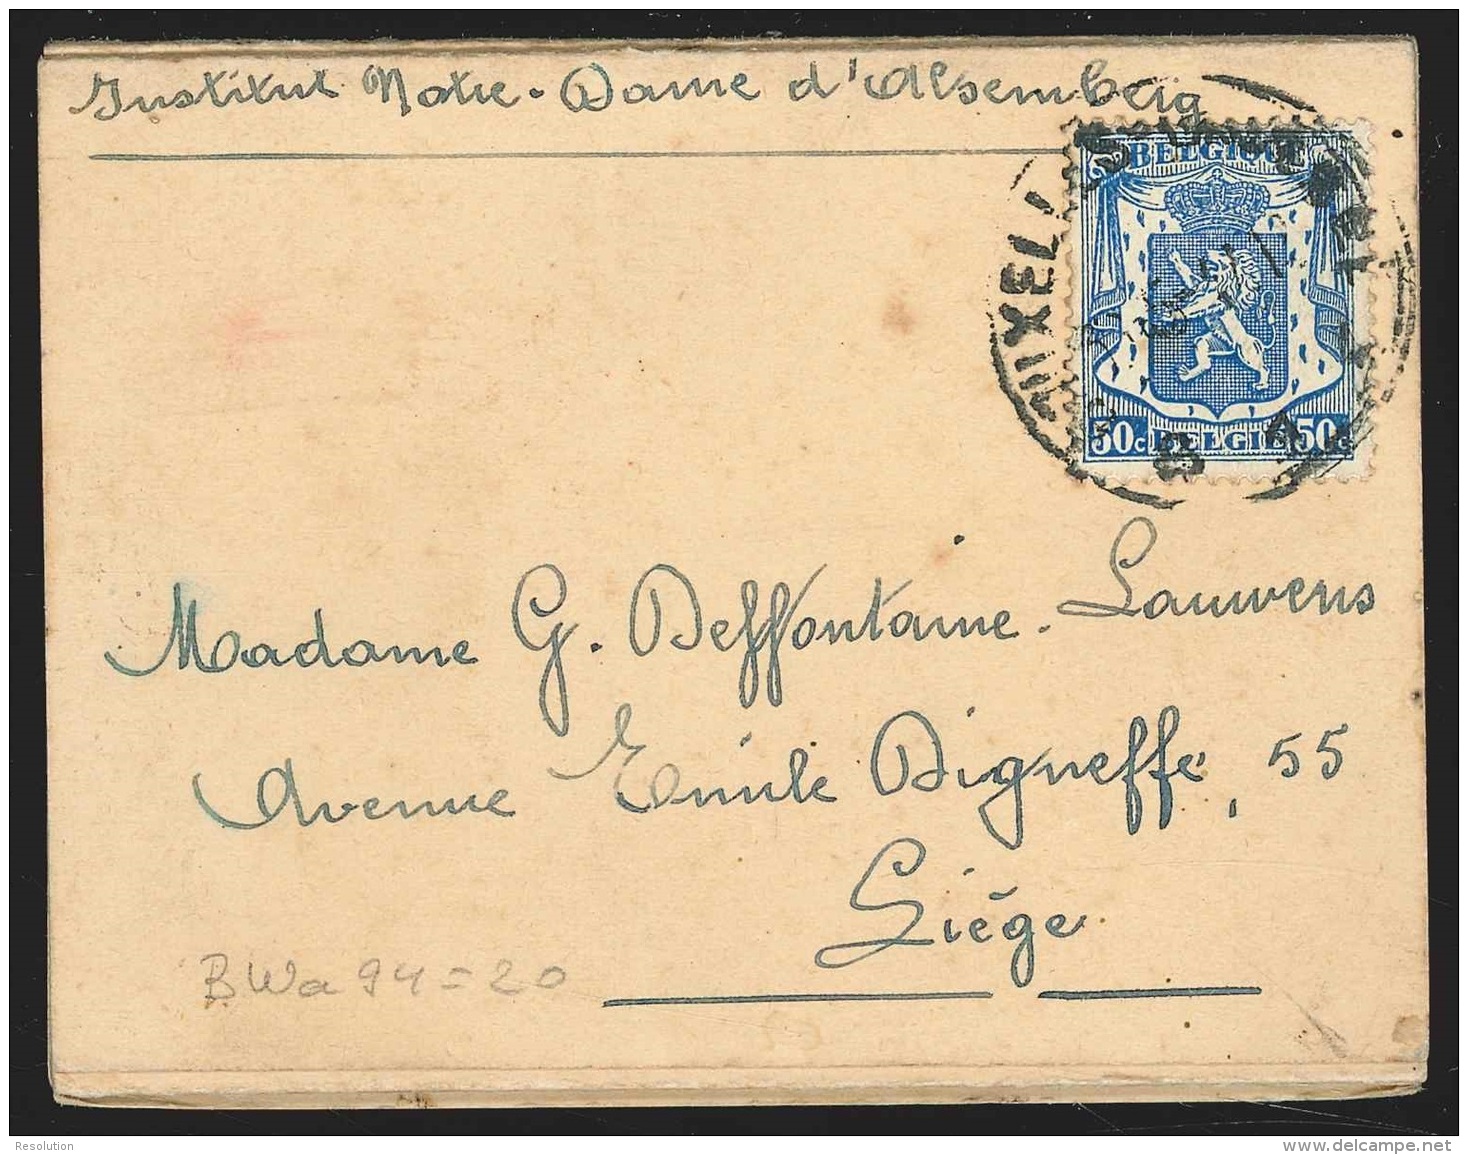 Institut Notre-Dame d'Alsemberg
BELGIQUE
BRUXELLES
50c BELGIE 50c
Madame G. Deffontaine-Lauwens
Avenue Emile Digneffe, 55
Liége
BWa 94 = 20
Resolution
www.delcampe.net